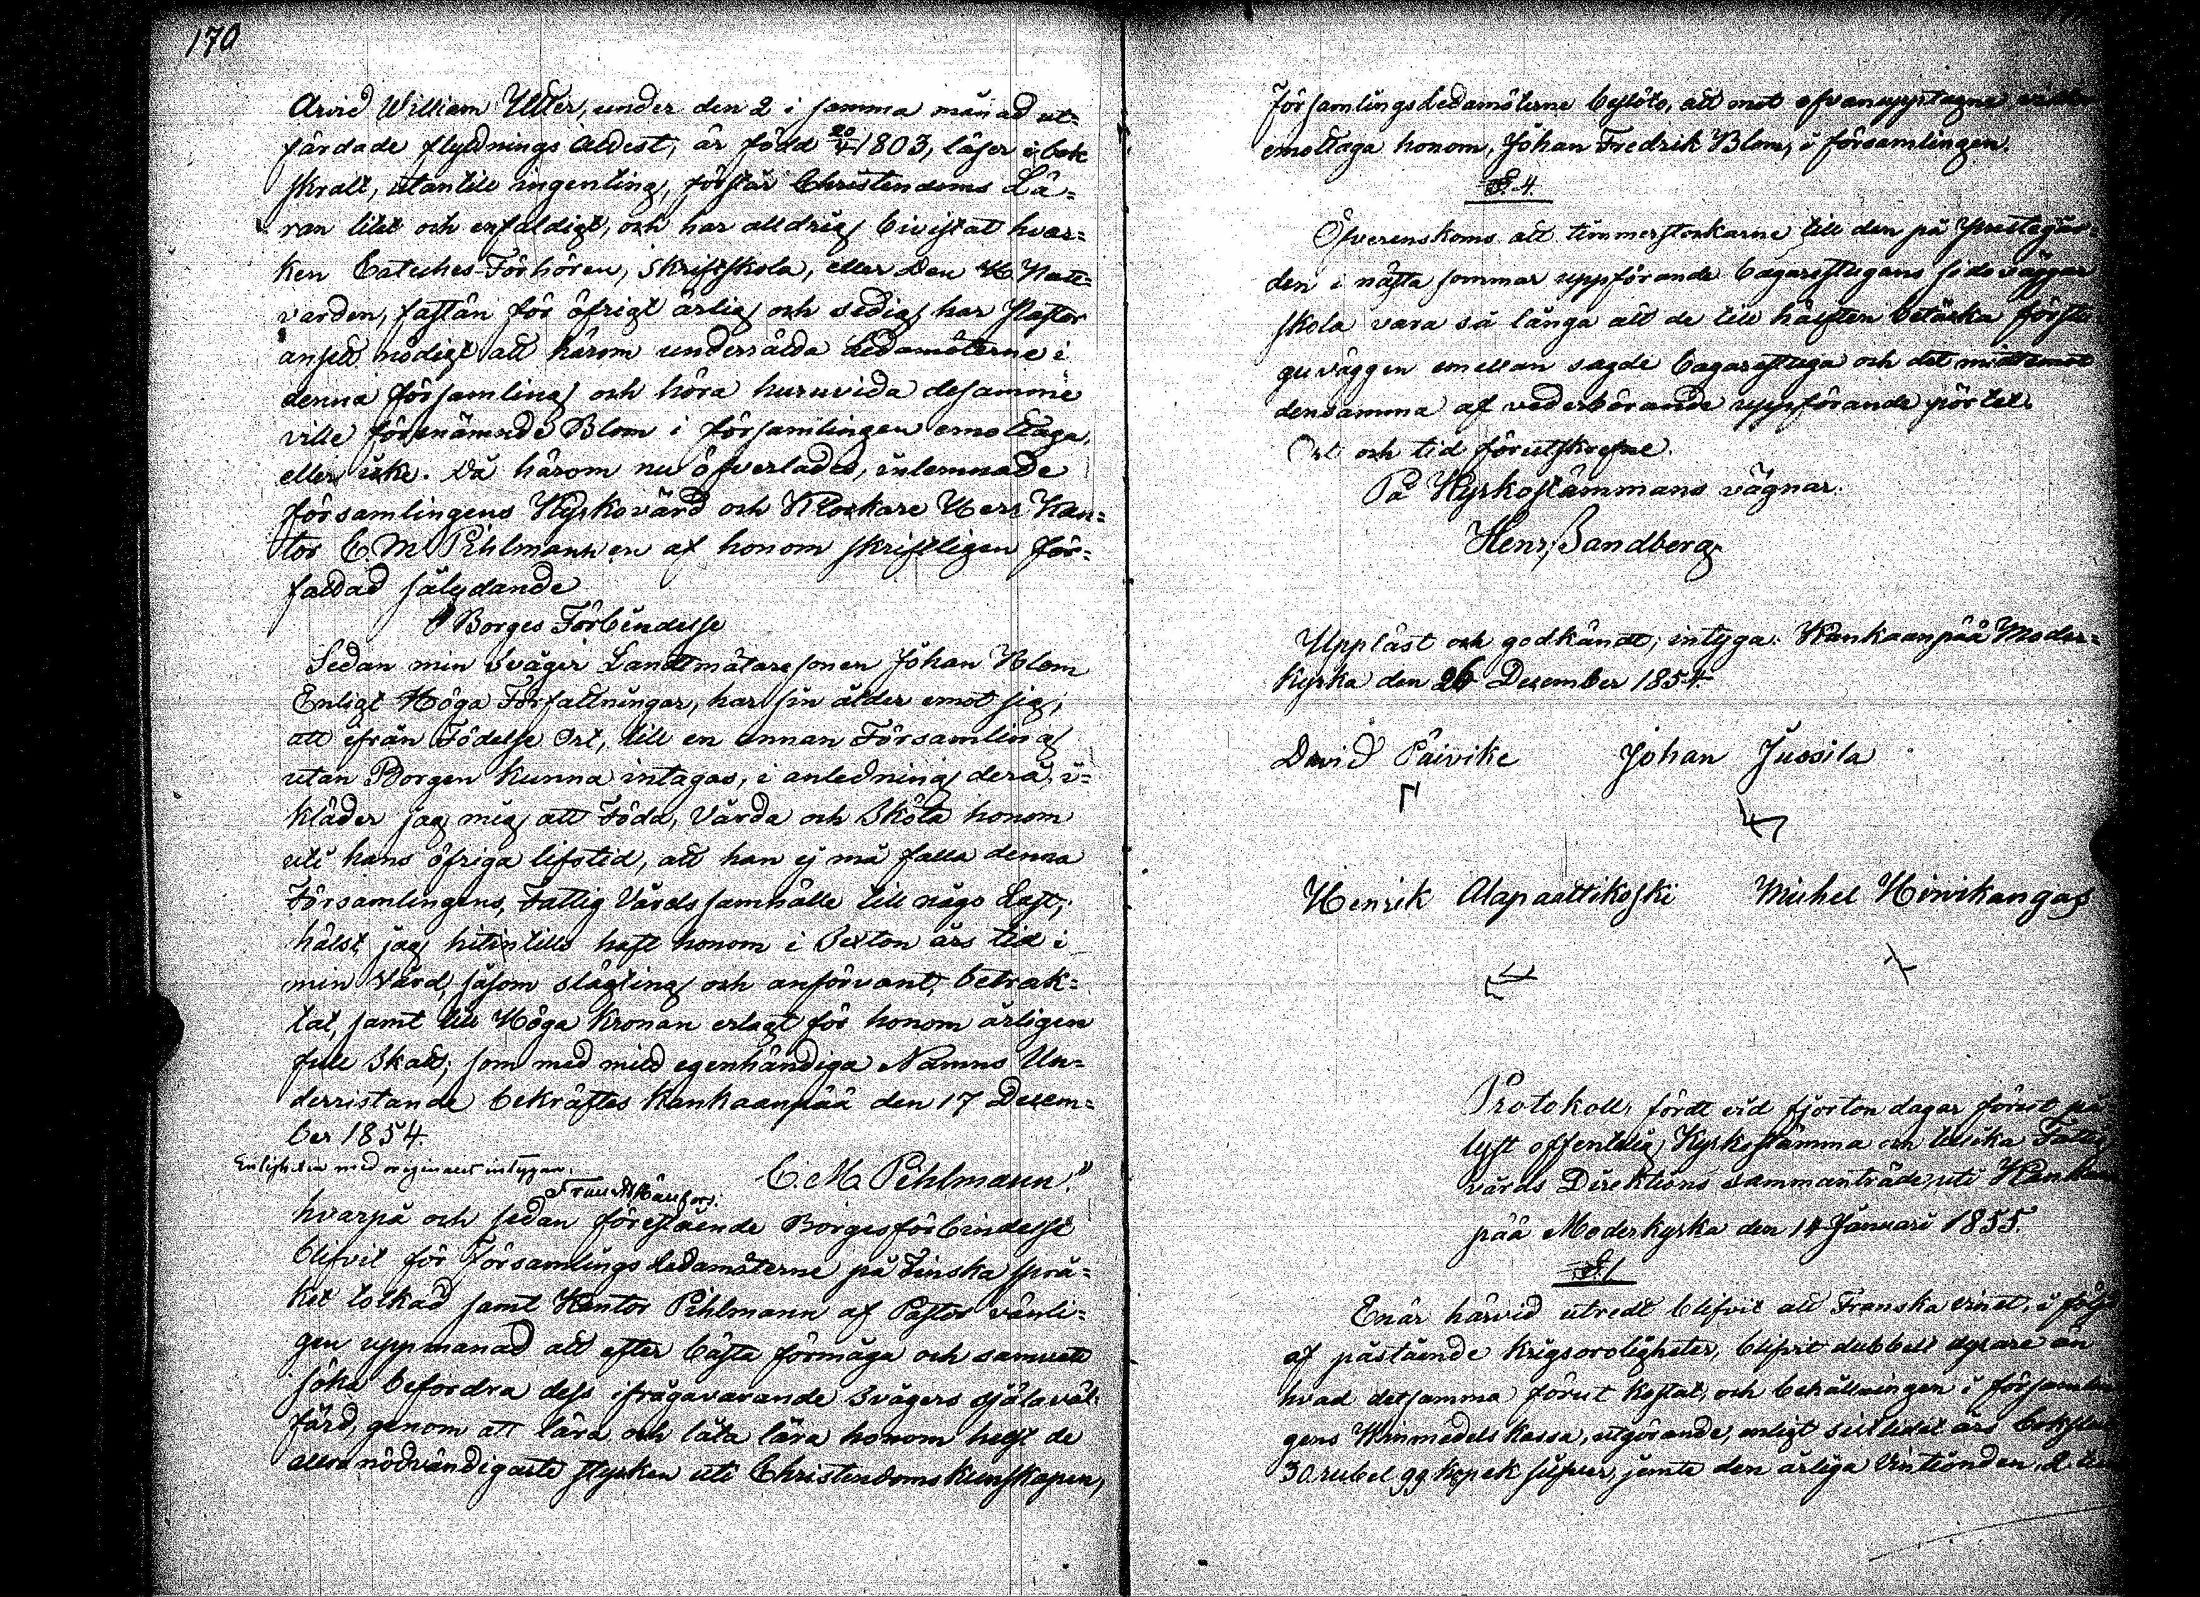 170
Arvid William Utter, under den 2 i samma månad ut=
färdade flyttnings Attest, är född 20/V 1803, läser i bok
skralt, utantill ingenting, förstår Christendoms Lä=
ran litet och enfaldigt, och har alldrig bivistat hvar=
ken Catches-Förhören, Skriftskola, eller Den H. Natt=
varden, fastän för öfrigt ärlig och sedig, har Pastor
ansett nödigt att härom underrätta Ledamöterne i
denna församling och höra huruvida desamme
ville förenämnde Blom i församlingen emottaga,
eller icke. Då härom nu öfverlades, inlemnade
församlingens Kyrkovärd och Klockare Herr Kan=
tor C. M. Pihlmann en af honom skriftligen för=
fattad sålydande
Borges Förbindelse
Sedan min Svåger Landtmätaresonen Johan Blom
Enligt Höga Författningar, har sin ålder emot sig,
att ifrån Födelse Ort, till en annan Församling
utan Borgen kunna intagas, i anledning deraf, i=
kläder jag mig att Föda, Vårda och Sköta honom
uti hans öfriga lifstid, att han ej må falla denna
Församlingens, Fattig Vårdssamhälle till någo Last,
hälst jag hitintills haft honom i Sexton års tid i
min Vård, såsom slägting och anförvant, betrak=
tat, samt till Höga Kronan erlagt för honom årligen
full Skatt; som med mitt egenhändiga Namns Un=
derristande bekräftes Kankaanpää den 17 Decem=
ber 1854.
Enligheten med originalet intygar.
C. M. Pihlmann."
hvarpå och sedan förestående Borgesförbindelse
blifvit för Församlings Ledamöterne på Finska Språ=
ket tolkad samt Kantor Pihlmann af Pastor vänli=
gen uppmanad att efter bästa förmåga och samvete
söka befordra dess ifrågavarande Svågers själaväl=
färd, genom att lära och låta lära honom helst de
allranödvändigaste stycken uti Christendomskunskapen,
Församlings Ledamöterne beslöto, att mot ofvanupptagne
emottaga honom, Johan Fredrik Blom, i församlingen.
§ 4.
Öfverenskoms att timmerstockarne till den på Prestegår
den i nästa sommar uppförande bagarestugans sidoväggar
skola vara så långa att de till hälften betäcka förstu
guväggen emellan sagde bagarestuga och det midtemot
densamma af vederbörande uppförande pörtet.
Ort och tid förutskrefne.
På Kyrkostämmans vägnar:
Henr. Sandberg
Uppläst och godkändt; intyga: Kankaanpää Moder=
kyrka den 26 December 1854.
David Päivike Johan Jussila
Henrik Alapaattikoski Michel Hirvikangas
Protokoll, fördt vid fjorton dagar förut på
lyst offentlig Kyrkostämma och tillika Fattig
vårds Direktions sammanträde, uti Kankaan
pää Moderkyrka den 14 Januari 1855.
§ 1
Enär härvid utredt blifvit att Franska vinet, i följd
af påstående krigsoroligheter, blifvit dubbelt dyrare än
hvad detsamma förut kostat, och behållningen i försam
gens Vinmedels kassa, utgörande, enligt sistlidet års
30 rubel 99 kopek silfver, jemte den årliga Vintionden, 2